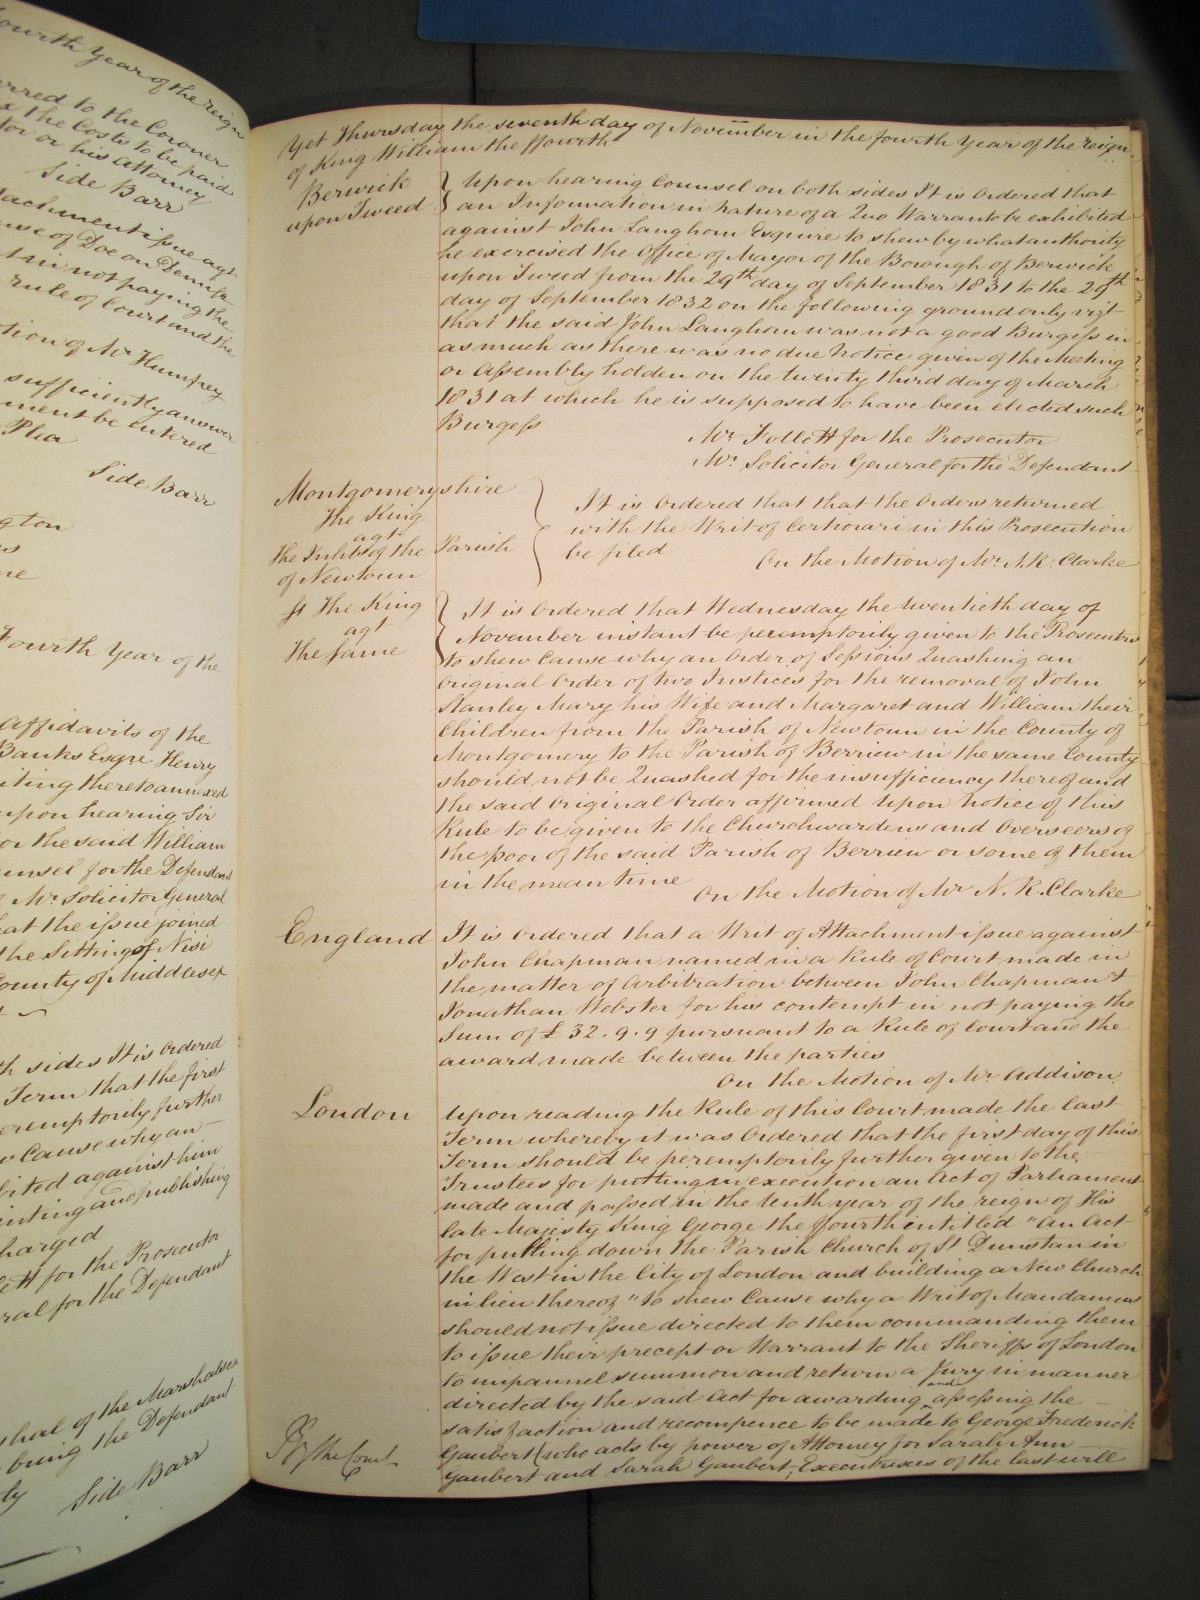 fourth Year of the reign
erred to the Coroner
x the Costs to be paid
tor or his Attorney
Side Barr
tachment issue agt
use of Doe on Demise
t in not paying the
rule of Court and the
tion of Mr Humfrey
sufficiently answer
ment be entered
Plea
Side Barr
gton
Fourth Year of the
Affidavits of the
Banks Esqre Henry
iting thereto annexed
upon hearing Sir
or the said William
unsel for the Defendant
Mr Solicitor General
hat the issue joined
the Sittings of Nisi
County of Middlesex
th sides It is Ordered
Term that the first
eremptorily further
w Cause why an
bited against him
inting and publishing
harged
lett for the Prosecutor
ral for the Defendant
shal of the Marshalsea
being the Defendant
ly
Side Barr
Yet Thursday the seventh day of November in the fourth Year of the reign
of King William the ffourth
Berwick
upon Tweed
Upon hearing Counsel on both sides It is Ordered that
an Information in nature of a Quo Warranto be exhibited
against John Langhorn Esquire to shew by what authority
he exercised the Office of Mayor of the Borough of Berwick
upon Tweed from the 29th day of September 1831 to the 29th
day of September 1832 on the following ground only vizt
that the said John Langhorn was not a good Burgess in
as much as there was no due Notice given of the Meeting
or Assembly holden on the twenty third day of March
1831 at which he is supposed to have been elected such
Burgess
Mr Follett for the Prosecutor
Mr Solicitor General for the Defendant
Montgomeryshire
The King
agt
The Inhits of the Parish
of Newtown
It is Ordered that that the Orders returned
with the Writ of Certiorari in this Prosecution
be filed
On the Motion of Mr N. R. Clarke
St The King
agt
The Same
It is Ordered that Wednesday the twentieth day of
November instant be peremptorily given to the Prosecutors
to shew Cause why an Order of Sessions Quashing an
Original Order of two Justices for the removal of John
Stanley Mary his Wife and Margaret and William their
Children from the Parish of Newtown in the County of
Montgomery to the Parish of Berriew in the same County
should not be Quashed for the insufficiency thereof and
the said Original Order affirmed Upon Notice of this
Rule to be given to the Churchwardens and Overseers of
the poor of the said Parish of Berriew or some of them
in the mean time
On the Motion of Mr N. R. Clarke
England
It is Ordered that a Writ of Attachment issue against
John Chapman named in a Rule of Court made in
the matter of Arbitration between John Chapman &
Jonathan Webster for his contempt in not paying the
Sum of £32.9.9 pursuant to a Rule of Court and the
award made between the parties
On the Motion of Mr Addison
London
Upon reading the Rule of this Court made the last
Term whereby it was Ordered that the first day of this
Term should be peremptorily further given to the
Trustees for putting in execution an Act of Parliament
made and passed in the tenth year of the reign of His
late Majesty King George the ffourth entitled "An Act
for pulling down the Parish Church of St Dunstan in
the West in the City of London and building a New Church
in lieu thereof" to shew Cause why a Writ of Mandamus
should not issue directed to them commanding them
to issue their precept or Warrant to the Sheriffs of London
to impannel summon and return a Jury in manner
directed by the said Act for awarding and assessing the
satisfaction and recompence to be made to George Frederick
Gaubert (who acts by power of Attorney for Sarah Ann
Gaubert and Sarah Gaubert, Executrixes of the last will
By the Court